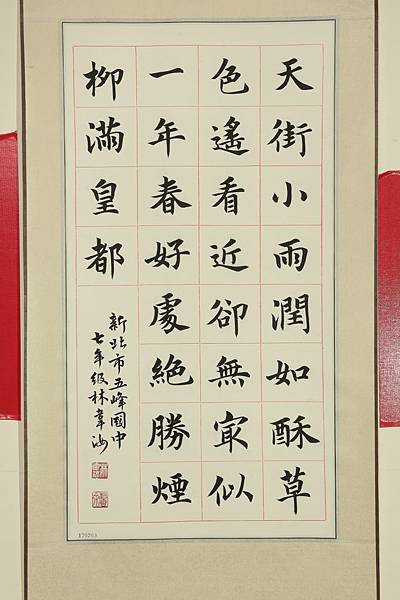 天街小雨潤如酥草
色遙看近卻無㝡似
一年春好處絕勝煙
柳滿皇都
新北市五峰國中
七年級林韋汝